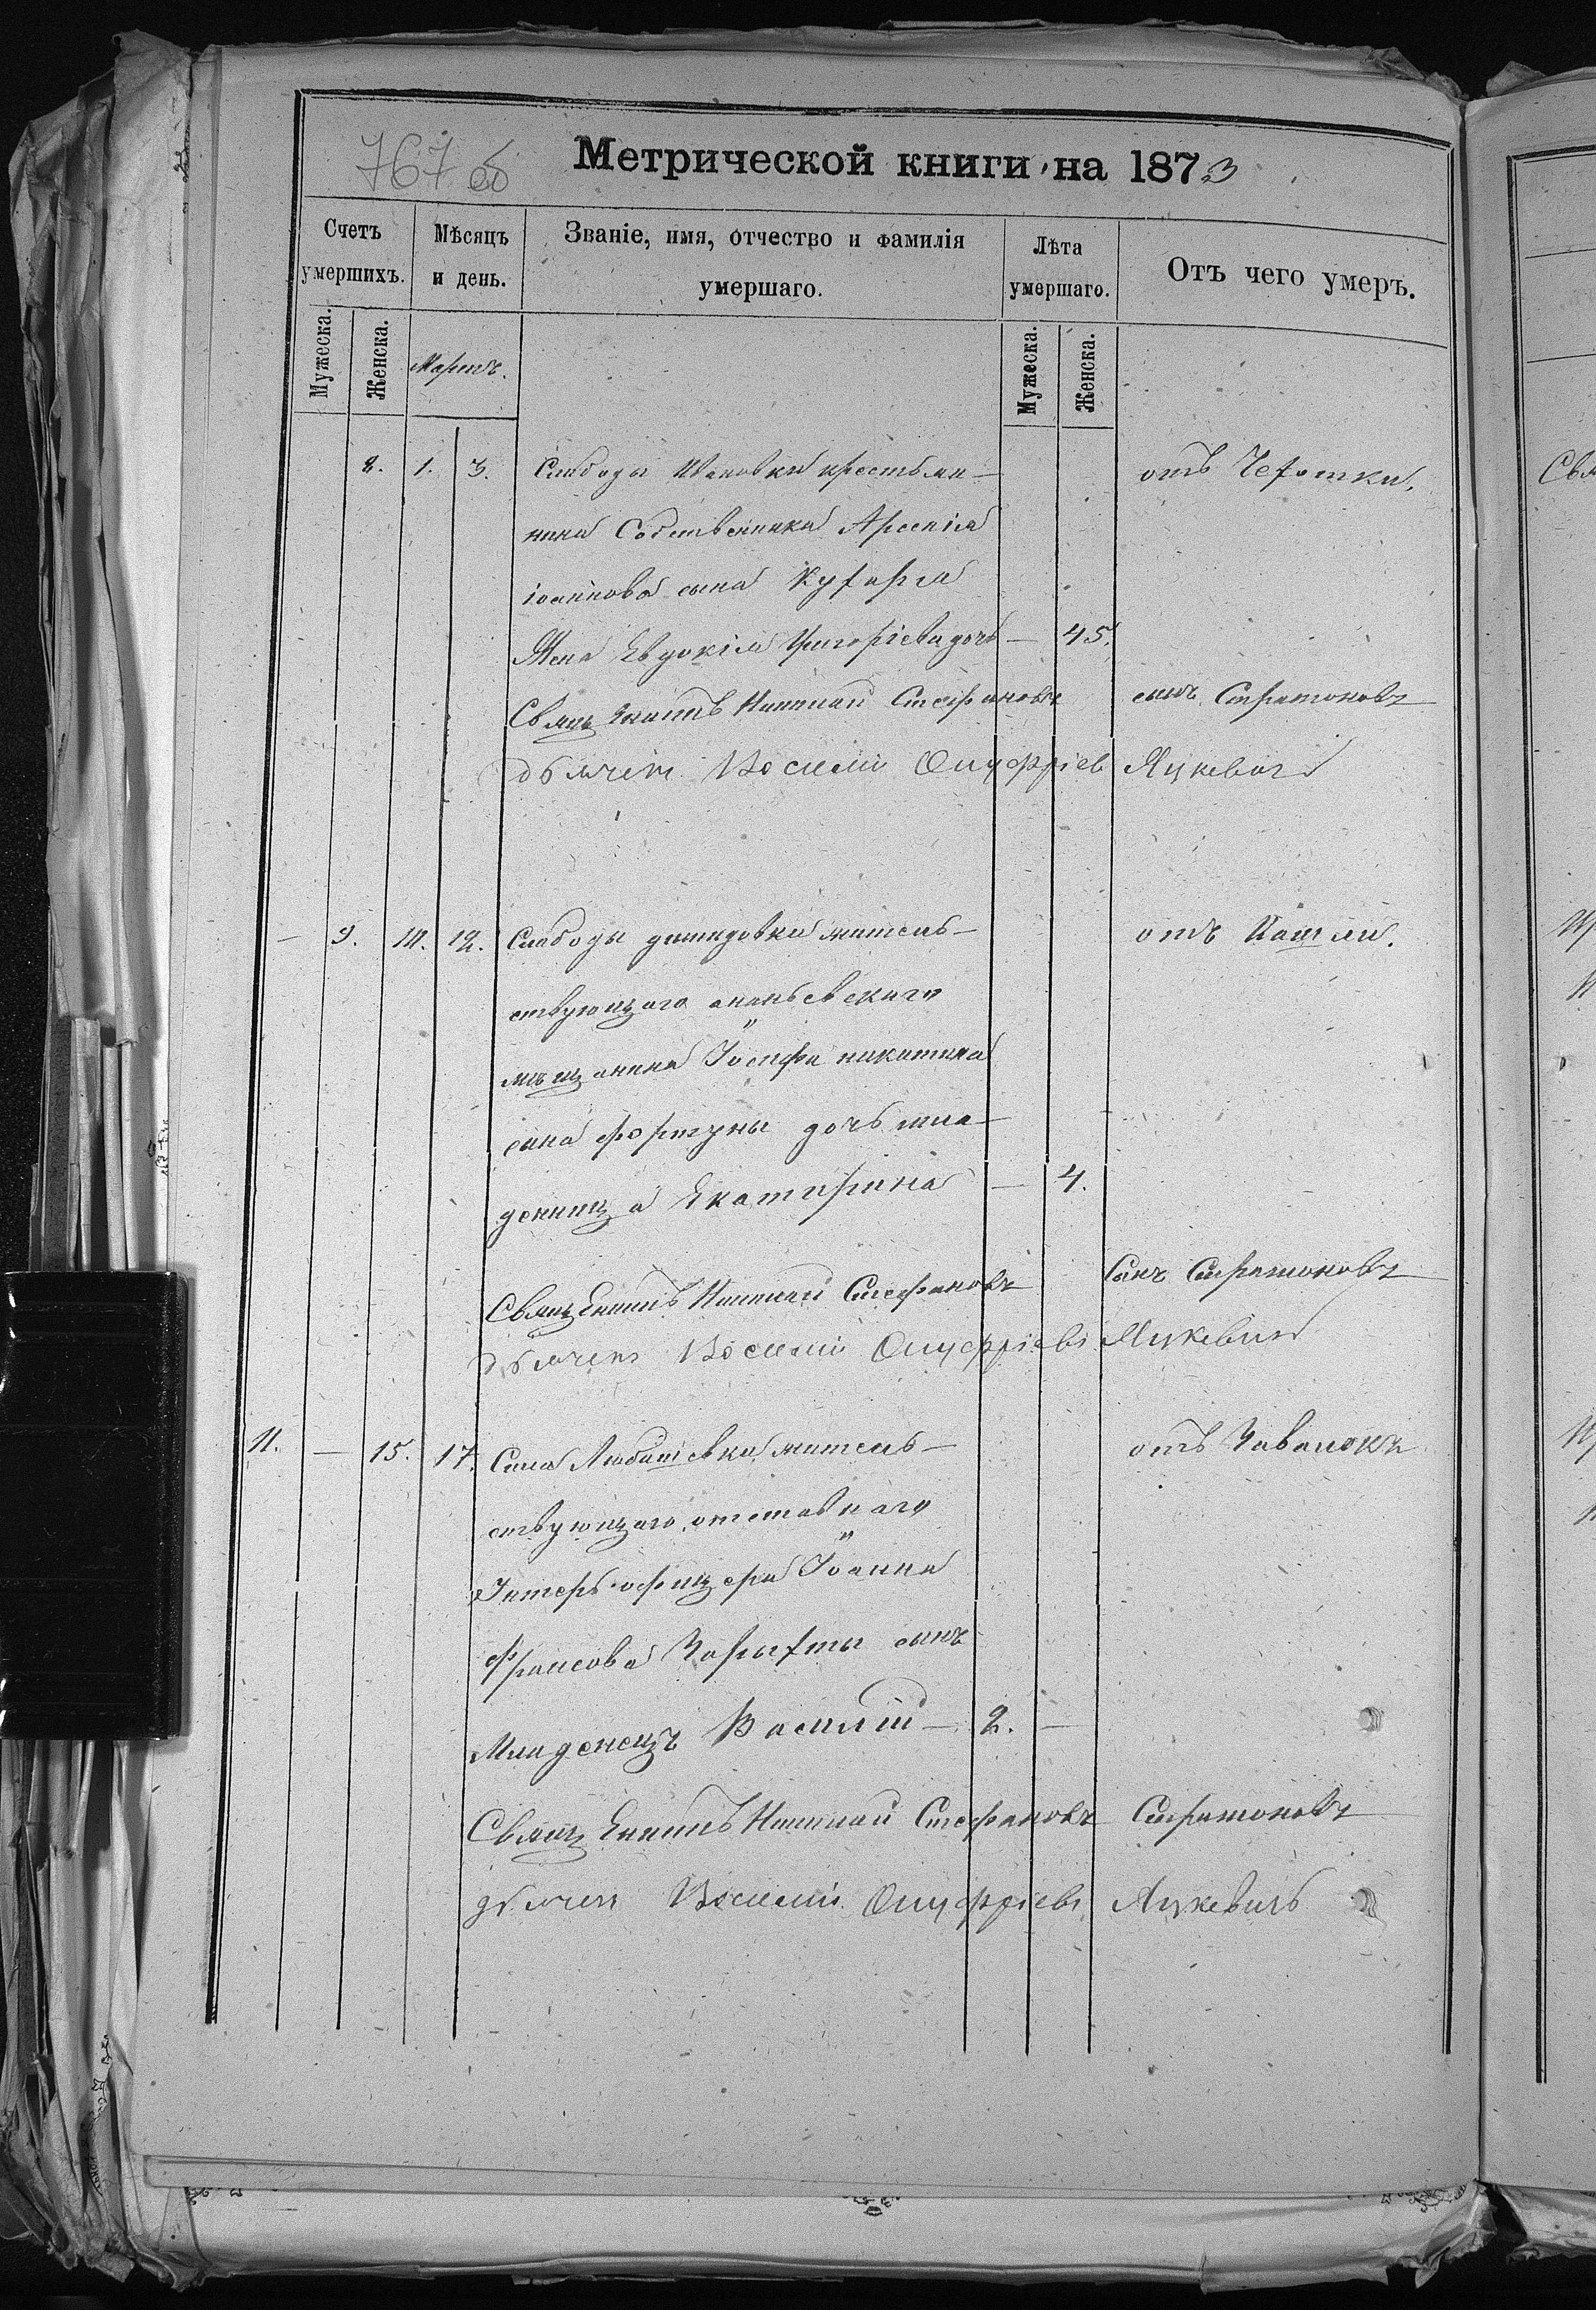 767 об
Метрической книги на 1873
Счетъ умершихъ.
Мѣсяцъ и день.
Званіе, имя, отчество и фамилія умершаго.
Лѣта умершаго.
Отъ чего умеръ.
Мужеска.
Женска.
Мартъ.
Мужеска.
Женска.
8. 1. 3. Слободы крестья- отъ Чехотки.
нина Собственника Арсенія
іоаннова сына
Жена Евдокія Григоріева дочь — 45.
Священникъ Николай Стефановъ сынъ Стратоновъ
дьячекъ Василій Онуфріев Яцкевичъ
— 9. 10. 12. Слободы демидовки житель- отъ Кашля.
ствующаго ананьевскаго
мѣщанина Іосифа никитина
сына фортуны дочь мла-
деница Екатирина — 4.
Священникъ Николай Стефановъ Сынъ Стратоновъ
дьячекъ Василій Онуфріевъ Яцкевичъ
11. — 15. 17. Села Любашевка житель- отъ Завалокъ
ствующаго отставнаго
Унтеръ-офицера Іоанна
сынъ
Младенецъ Василій — 2. —
Священникъ Николай Стефановъ Стратоновъ
дьячекъ Василій Онуфріевъ Яцкевичъ